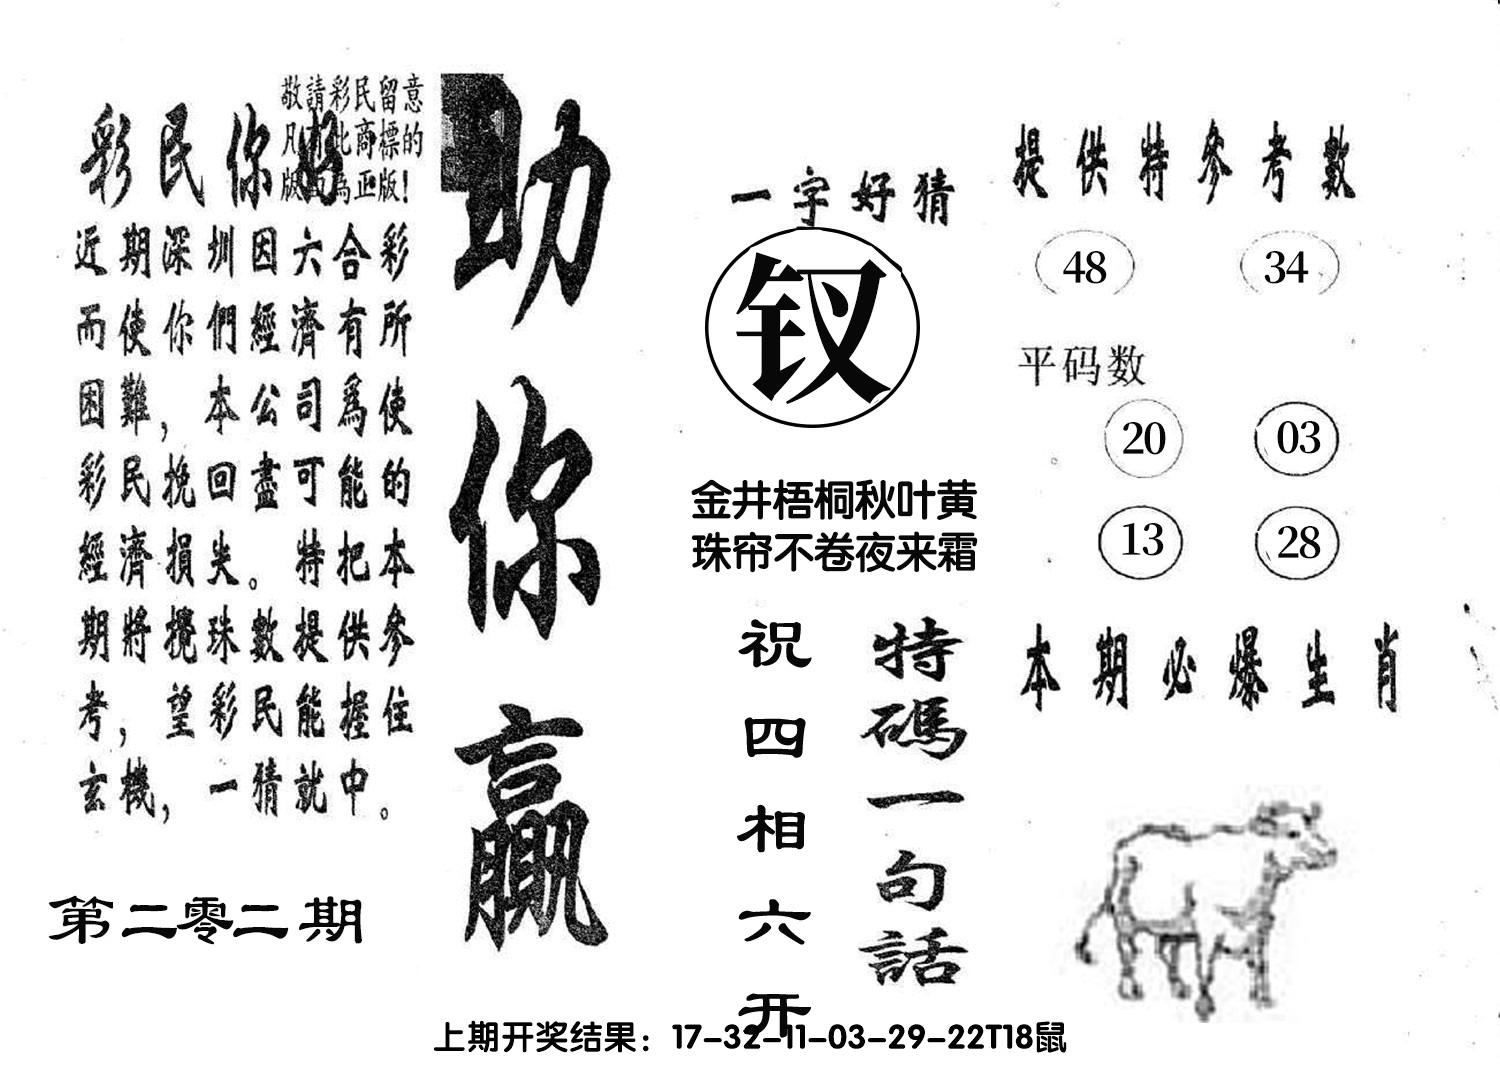 敬請彩民留意
凡有此商標的
版面為正版!
彩民你好
近期深圳因六合彩
而使你們經濟有所
困難，本公司爲使
彩民挽回盡可能的
經濟損失。特把本
期將攪珠數提供參
考，望彩民能握住
玄機，一猜就中。
第二零二期
助你贏
一字好猜
钗
金井梧桐秋叶黄
珠帘不卷夜来霜
特碼一句話
祝四相六开
提供特參考數
48 34
平码数
20 03
13 28
本期必爆生肖
上期开奖结果：17-32-11-03-29-22T18鼠